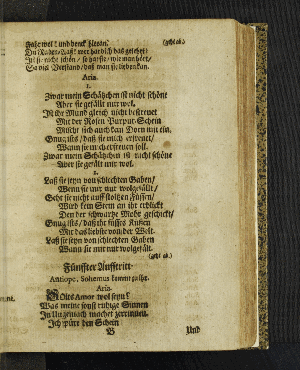 Fahr wol! und denck hieran! (geht ab.)
nicht schön / so
so viel Verstand / daß man sie lieben kan.
Aria.
1.
Zwar mein Schätzchen ist nicht schöne
Aber sie gefällt mir wol.
Ist ihr Mund gleich nicht bestreuet
Mit der Rosen Purpur-Schein
Mischt sich auch kein Dorn mit ein.
Gnug ists / daß sie mich erfreut /
Wann sie mich erfreuen soll.
Zwar mein Schätzchen ist nicht schöne
Aber sie gefällt mir wol.
2.
Laß sie seyn von schlechten Gaben /
Wenn sie mir nur wolgefällt /
Geht sie nicht auff stoltzen Füssen /
Wird kein Stern an ihr erblickt
Den der schwartze Mohr geschickt /
Gnug ists / daß ihr süsses Küssen
Mir das liebste von der Welt.
Laß sie seyn von schlechten Gaben
Wann sie mir nur wolgefällt.
(geht ab.)
Fünffter Aufftritt.
Antiope. Sohemus kommt
Aria.
Solts Amor wol seyn?
Was meine sonst ruhige Sinnen
In Ungemach machet zerrinnen.
Ich spüre den Schein
B Und